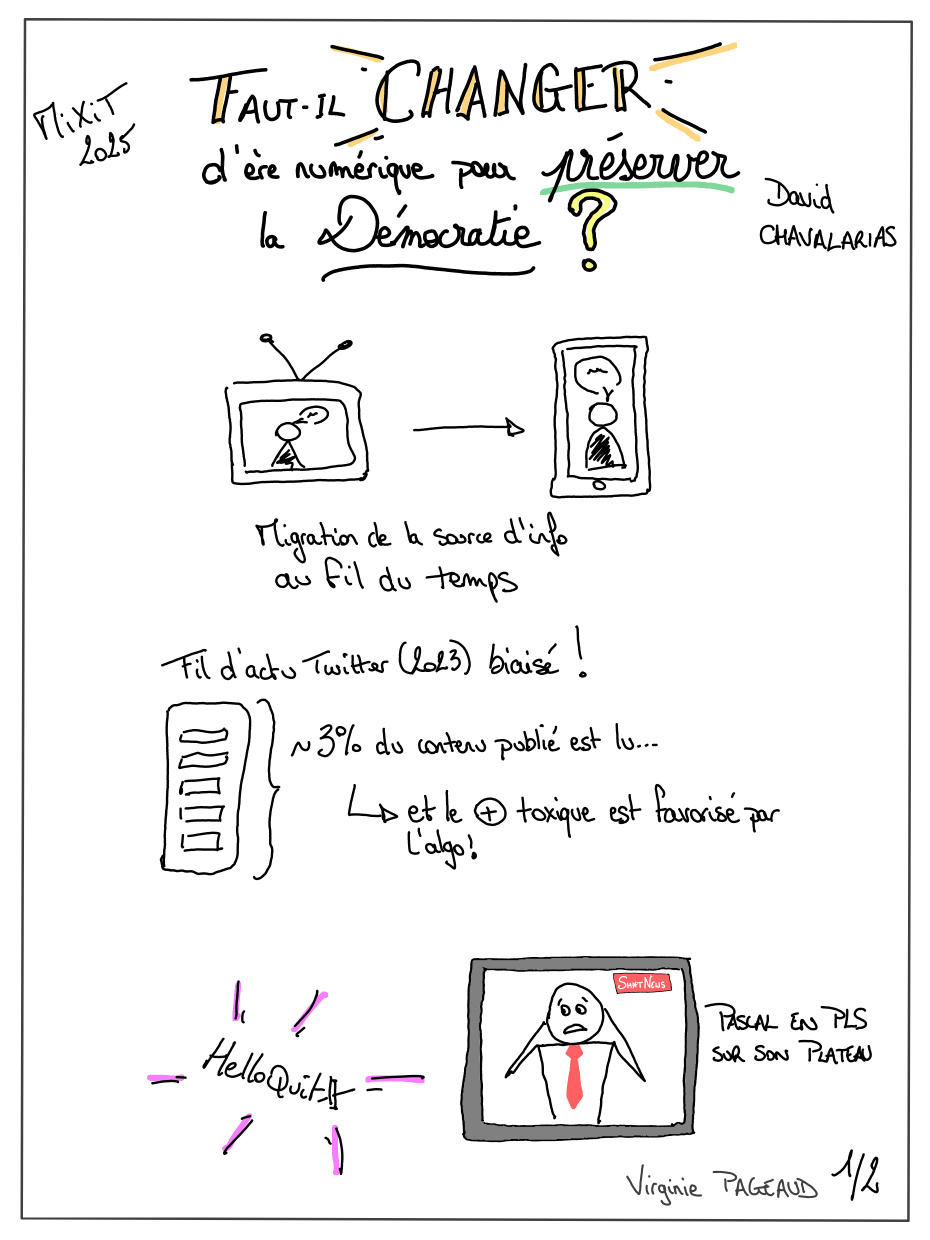 MiXiT
2025
FAUT-IL CHANGER
d'ère numérique pour préserver
la Démocratie ?
David
CHAVALARIAS
Migration de la source d'info
au fil du temps
Fil d'actu Twitter (2023) biaisé !
~ 3% du contenu publié est lu...
et le + toxique est favorisé par
l'algo!
HelloQuitX
SHITNEWS
PASCAL EN PLS
SUR SON PLATEAU
Virginie PAGEAUD
1/2